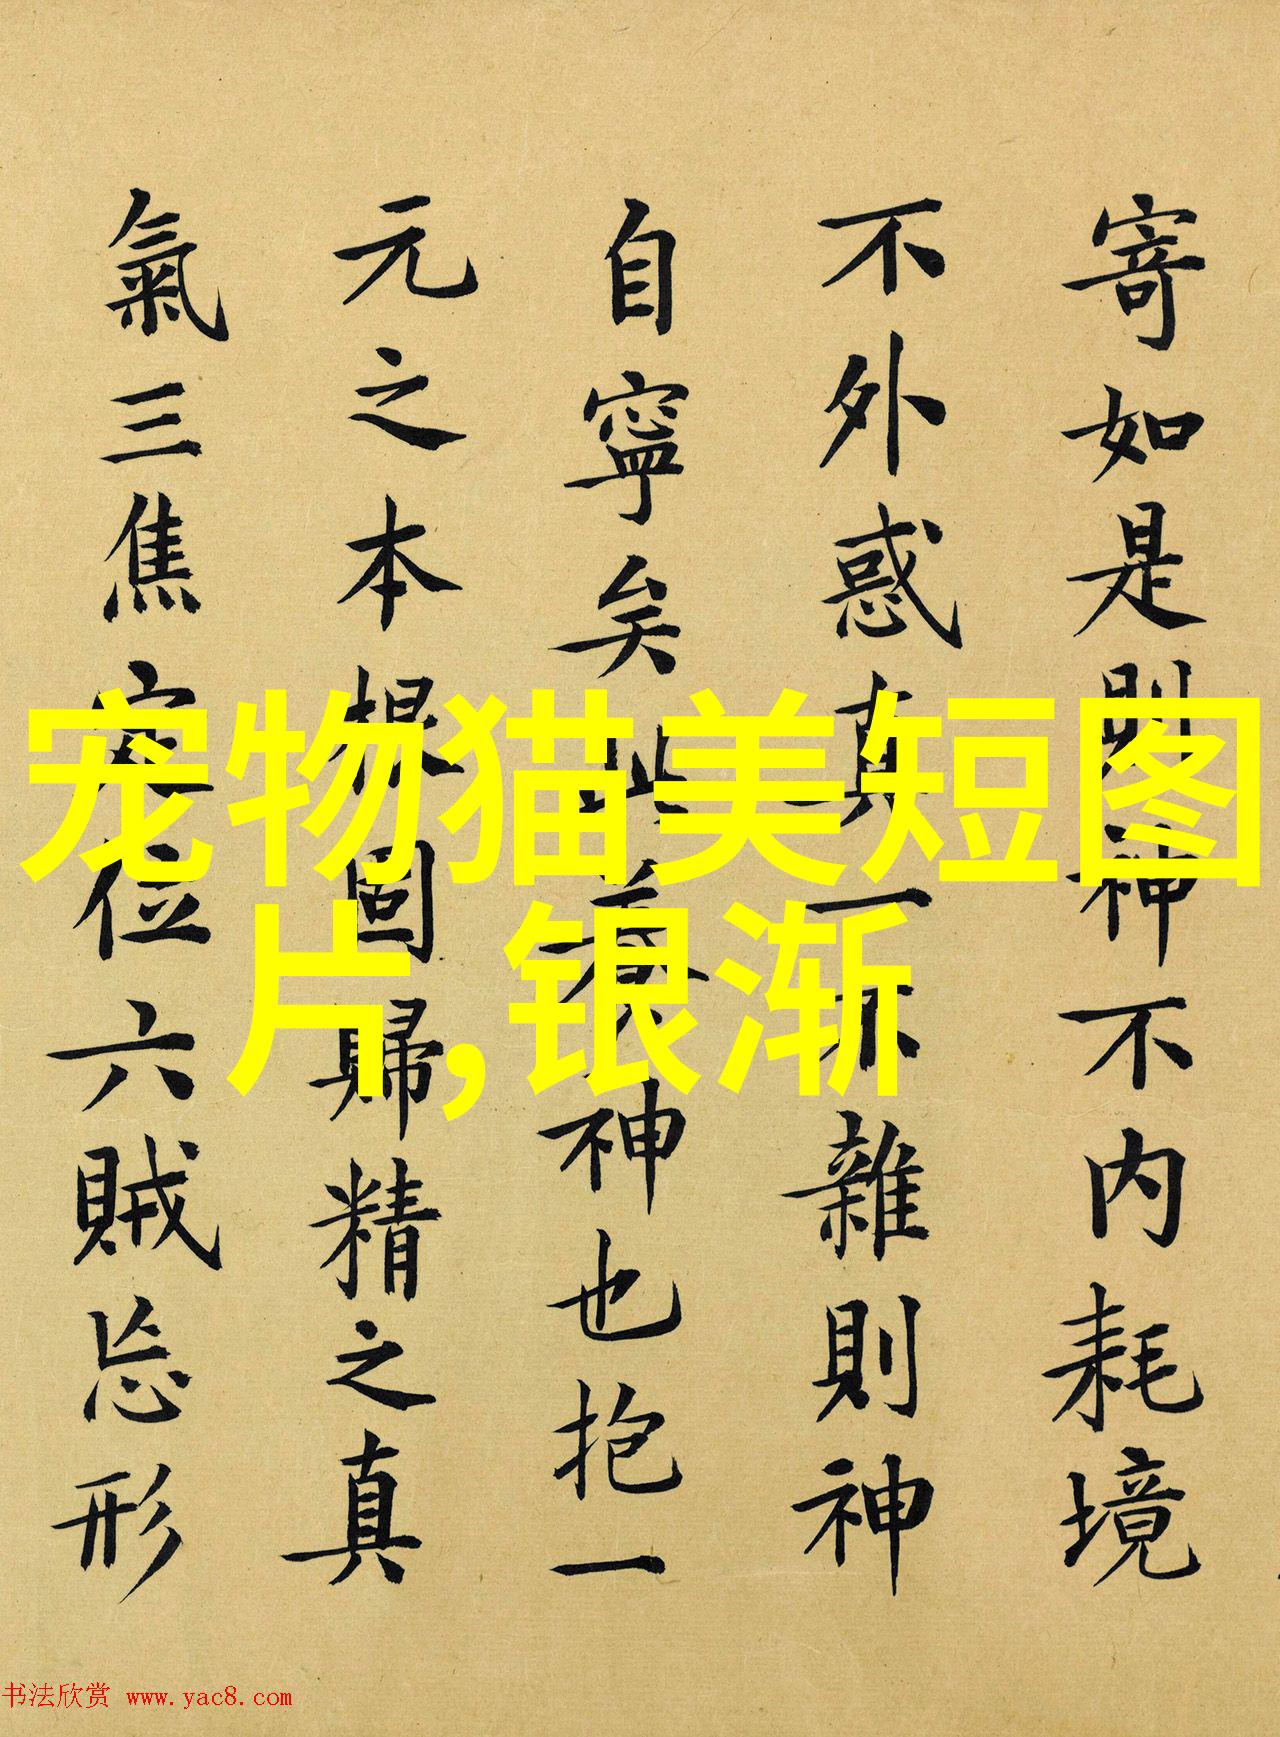 寄如是則神不内耗境
不外惑真一不雜則神
自寧矣此養神也抱一
元之本根固歸精之真
氣三焦定位六賊忘形
宠物猫美短图
片,银渐
书法欣赏 www.yac8.com